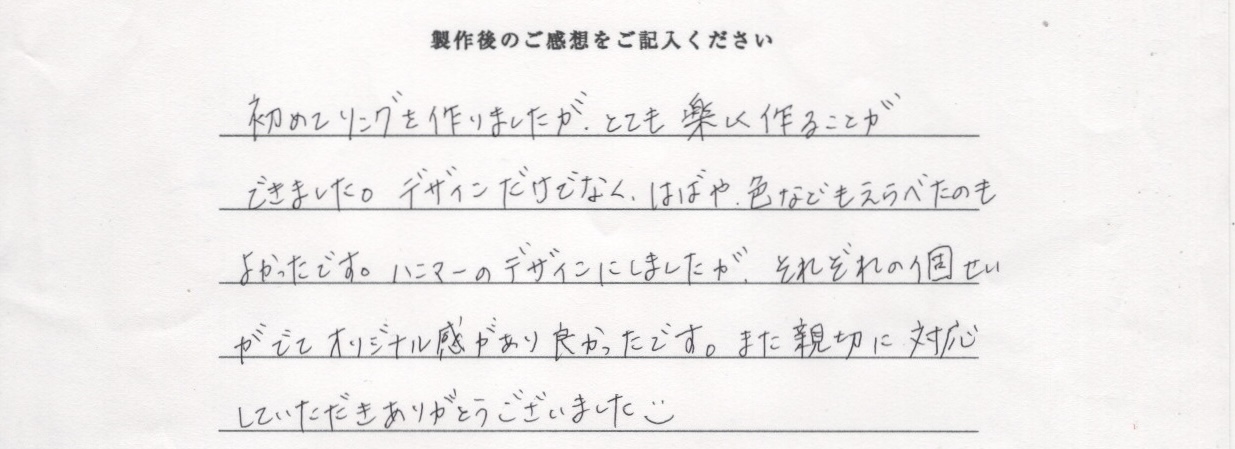 製作後のご感想をご記入ください
初めてリングを作りましたが、とても楽しく作ることが
できました。デザインだけでなく、はばや、色などもえらべたのも
よかったです。ハンマーのデザインにしましたが、それぞれの個せい
がでてオリジナル感があり良かったです。また親切に対応
していただきありがとうございました